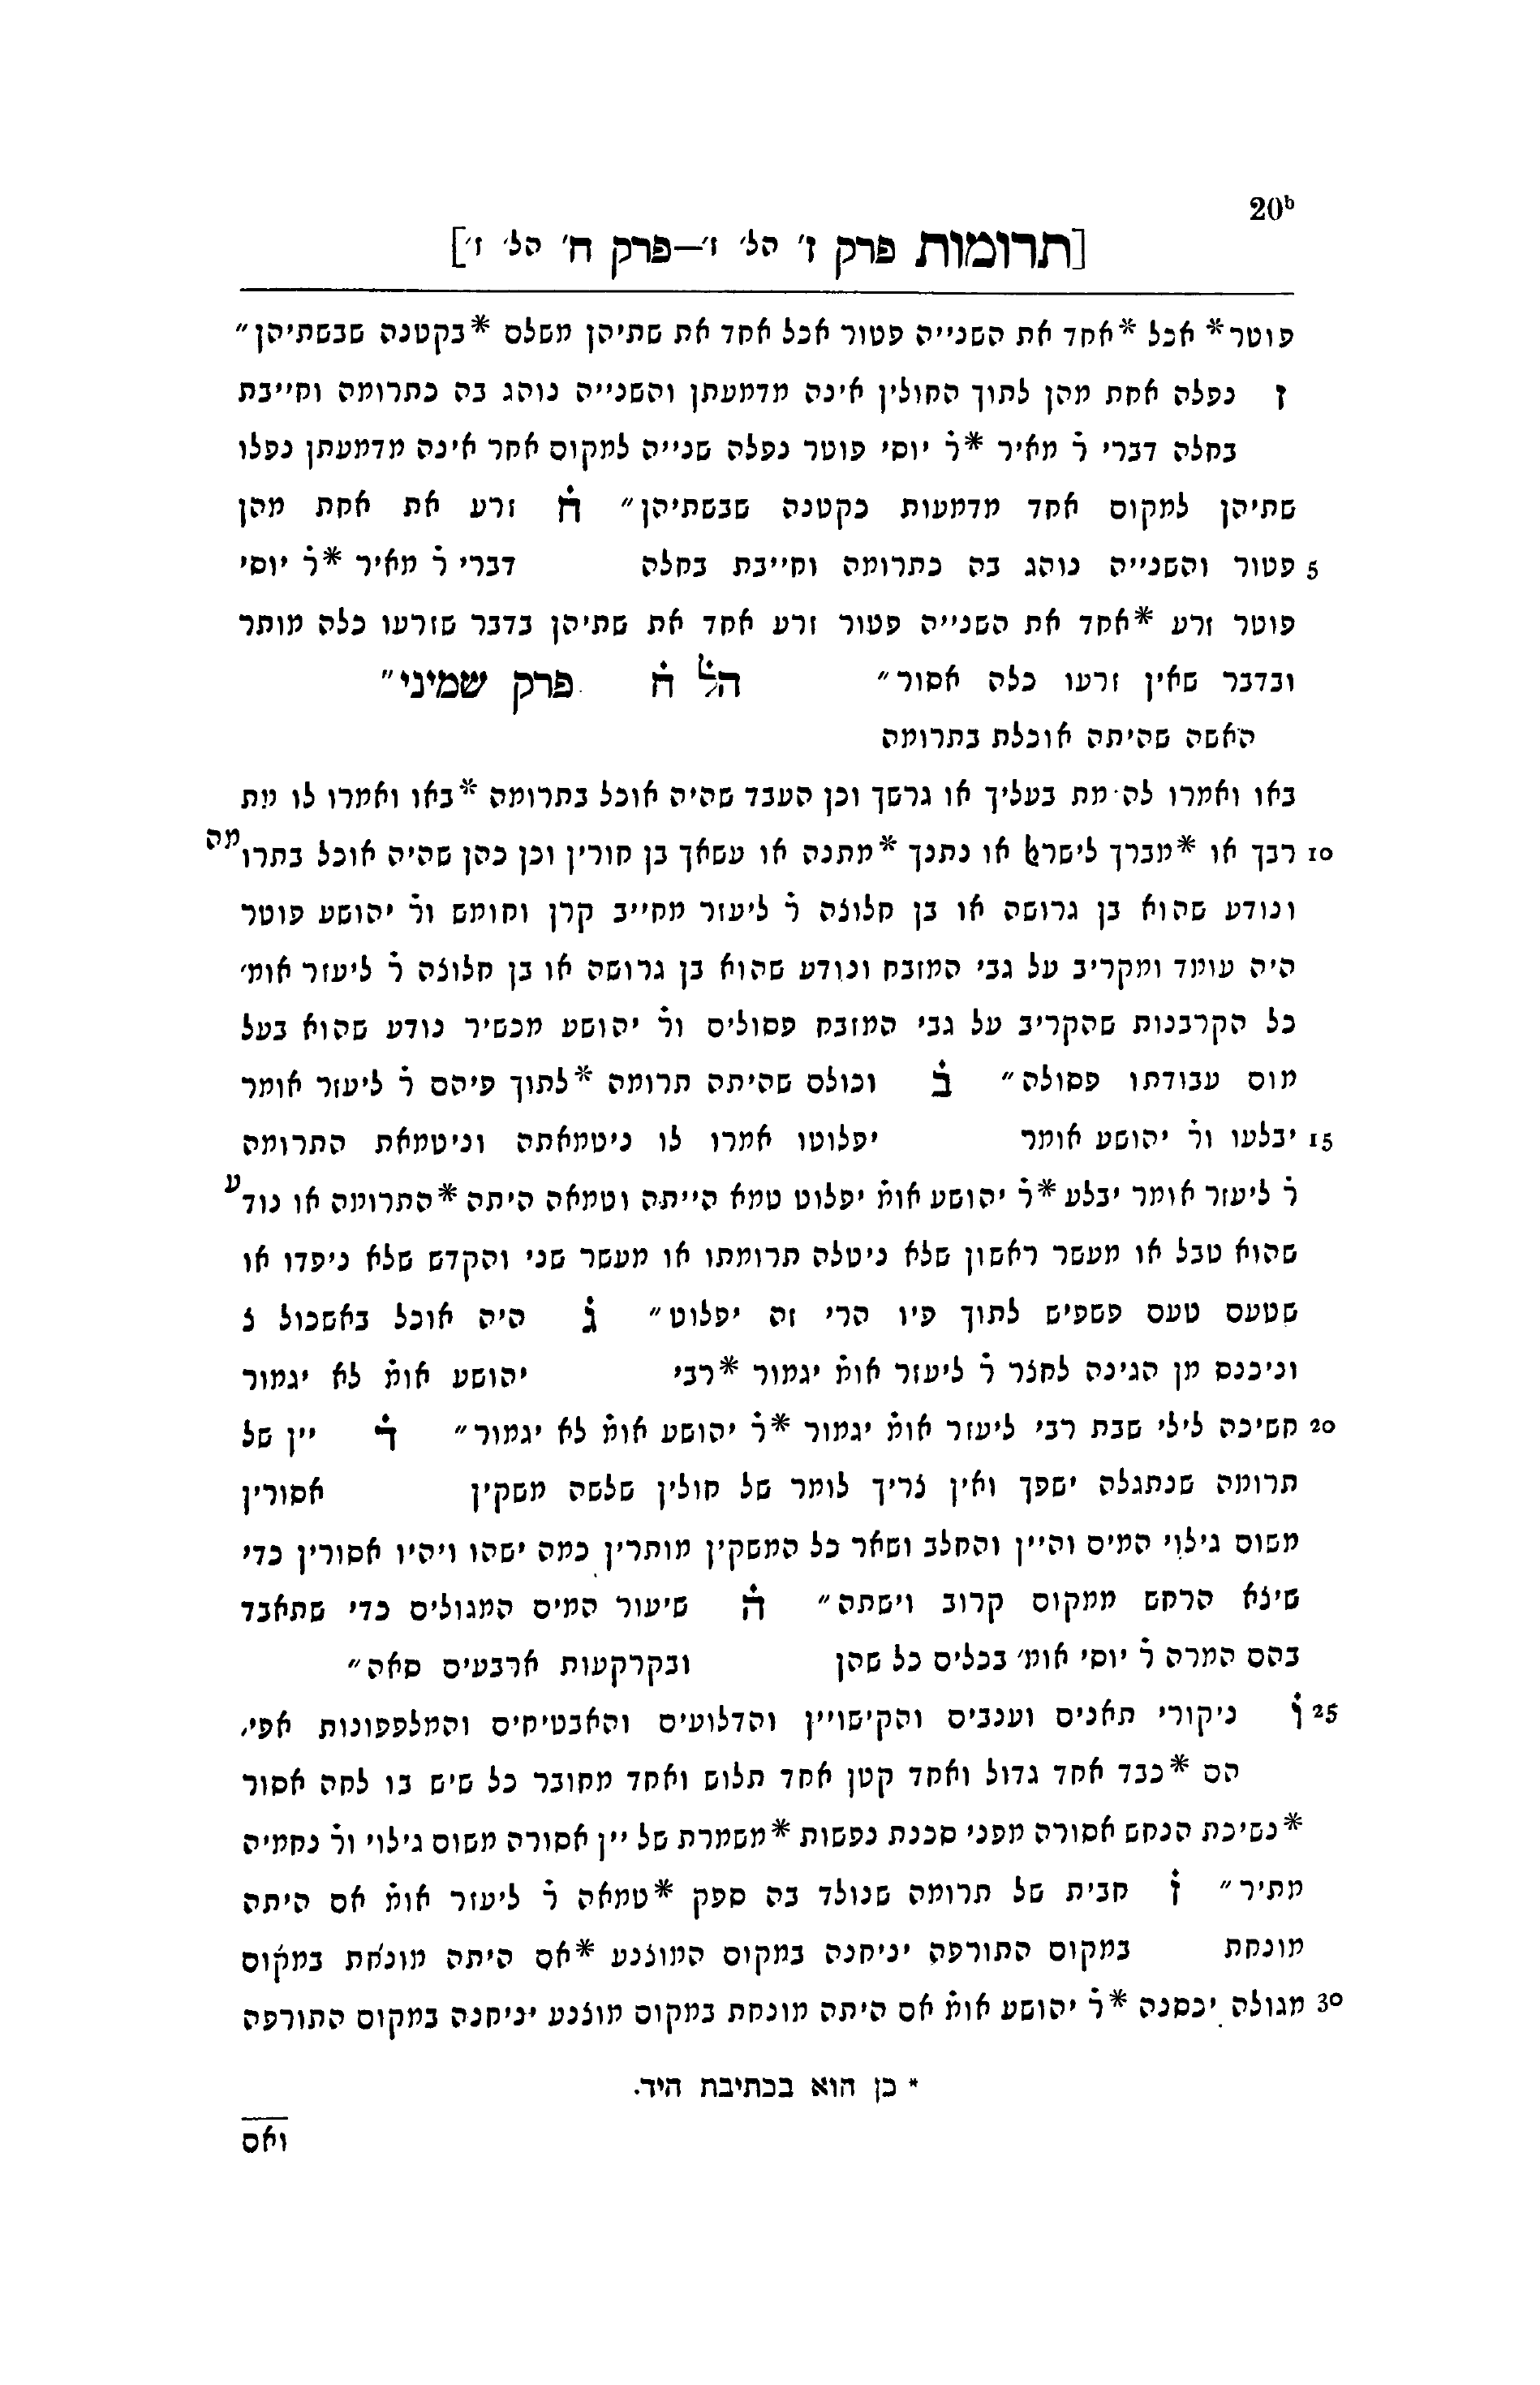 20b
[תרומות פרק ז' הל' ז'—פרק ח' הל' ז']
פוטר* אכל *אחד את השנייה פטור אכל אחד את שתיהן משלם *בקטנה שבשתיהן״
ז נפלה אחת מהן לתוך החולין אינה מדמעתן והשנייה נוהג בה כתרומה וחייבת
בחלה דברי ר̇ מאיר *ר̇ יוסי פוטר נפלה שנייה למקום אחר אינה מדמעתן נפלו
שתיהן למקום אחד מדמעות כקטנה שבשתיהן״ ח̇ זרע את אחת מהן
5 פטור והשנייה נוהג בה כתרומה וחייבת בחלה דברי ר̇ מאיר *ר̇ יוסי
פוטר זרע *אחד את השנייה פטור זרע אחד את שתיהן בדבר שזרעו כלה מותר
ובדבר שאין זרעו כלה אסור״ הל̇ ח̇ פרק שמיני״
האשה שהיתה אוכלת בתרומה
באו ואמרו לה מת בעליך או גרשך וכן העבד שהיה אוכל בתרומה *באו ואמרו לו מת
10 רבך או *מברך לישראל או נתנך *מתנה או עשאך בן חורין וכן כהן שהיה אוכל בתרומה
ונודע שהוא בן גרושה או בן חלוצה ר̇ ליעזר מחייב קרן וחומש ור̇ יהושע פוטר
היה עומד ומקריב על גבי המזבח ונודע שהוא בן גרושה או בן חלוצה ר̇ ליעזר אומ׳
כל הקרבנות שהקריב על גבי המזבח פסולים ור̇ יהושע מכשיר נודע שהוא בעל
מום עבודתו פסולה״ ב̇ וכולם שהיתה תרומה *לתוך פיהם ר̇ ליעזר אומר
15 יבלעו ור̇ יהושע אומר יפלוטו אמרו לו ניטמאתה וניטמאת התרומה
ר̇ ליעזר אומר יבלע *ר̇ יהושע אומ̇ יפלוט טמא הייתה וטמאה היתה *התרומה או נודע
שהוא טבל או מעשר ראשון שלא ניטלה תרומתו או מעשר שני והקדש שלא ניפדו או
שטעם טעם פשפיש לתוך פיו הרי זה יפלוט״ ג̇ היה אוכל באשכול צ
וניכנס מן הגינה לחצר ר̇ ליעזר אומ̇ יגמור *רבי יהושע אומ̇ לא יגמור
20 חשיכה לילי שבת רבי ליעזר אומ̇ יגמור *ר̇ יהושע אומ̇ לא יגמור״ ד̇ יין של
תרומה שנתגלה ישפך ואין צריך לומר של חולין שלשה משקין אסורין
משום גילוי המים והיין והחלב ושאר כל המשקין מותרין כמה ישהו ויהיו אסורין כדי
שיצא הרחש ממקום קרוב וישתה״ ה̇ שיעור המים המגולים כדי שתאבד
בהם המרה ר̇ יוסי אומ׳ בכלים כל שהן ובקרקעות ארבעים סאה״
25 ו̇ ניקורי תאנים וענבים והקישויין והדלועים והאבטיחים והמלפפונות אפי׳
הם *כבד אחד גדול ואחד קטן אחד תלוש ואחד מחובר כל שיש בו לחה אסור
*נשיכת הנחש אסורה מפני סכנת נפשות *משמרת של יין אסורה משום גילוי ור̇ נחמיה
מתיר״ ז̇ חבית של תרומה שנולד בה ספק *טמאה ר̇ ליעזר אומ̇ אם היתה
מונחת במקום התורפה יניחנה במקום המוצנע *אם היתה מונחת במקום
30 מגולה יכסנה *ר̇ יהושע אומ̇ אם היתה מונחת במקום מוצנע יניחנה במקום התורפה
* כן הוא בכתיבת היד.
ואם